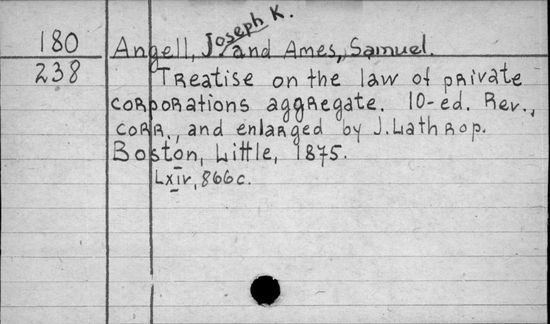 180 Angell, Joseph K. and Ames, Samuel.
238 Treatise on the law of private
corporations aggregate. 10-ed. Rev.,
corr., and enlarged by J. Lathrop.
Boston, Little, 1875.
Lxiv, 866c.